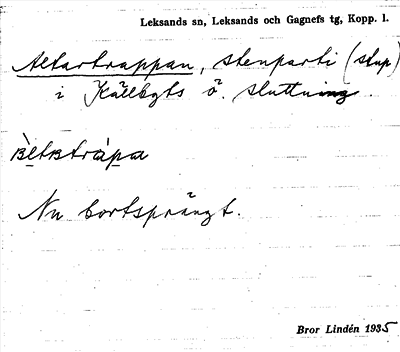 Leksands sn, Leksands och Gagnefs tg, Kopp. l.
Altartrappan, stenparti (stup)
i Källbyts ö. sluttning.
Nu bortsprängt.
Bror Lindén 1935